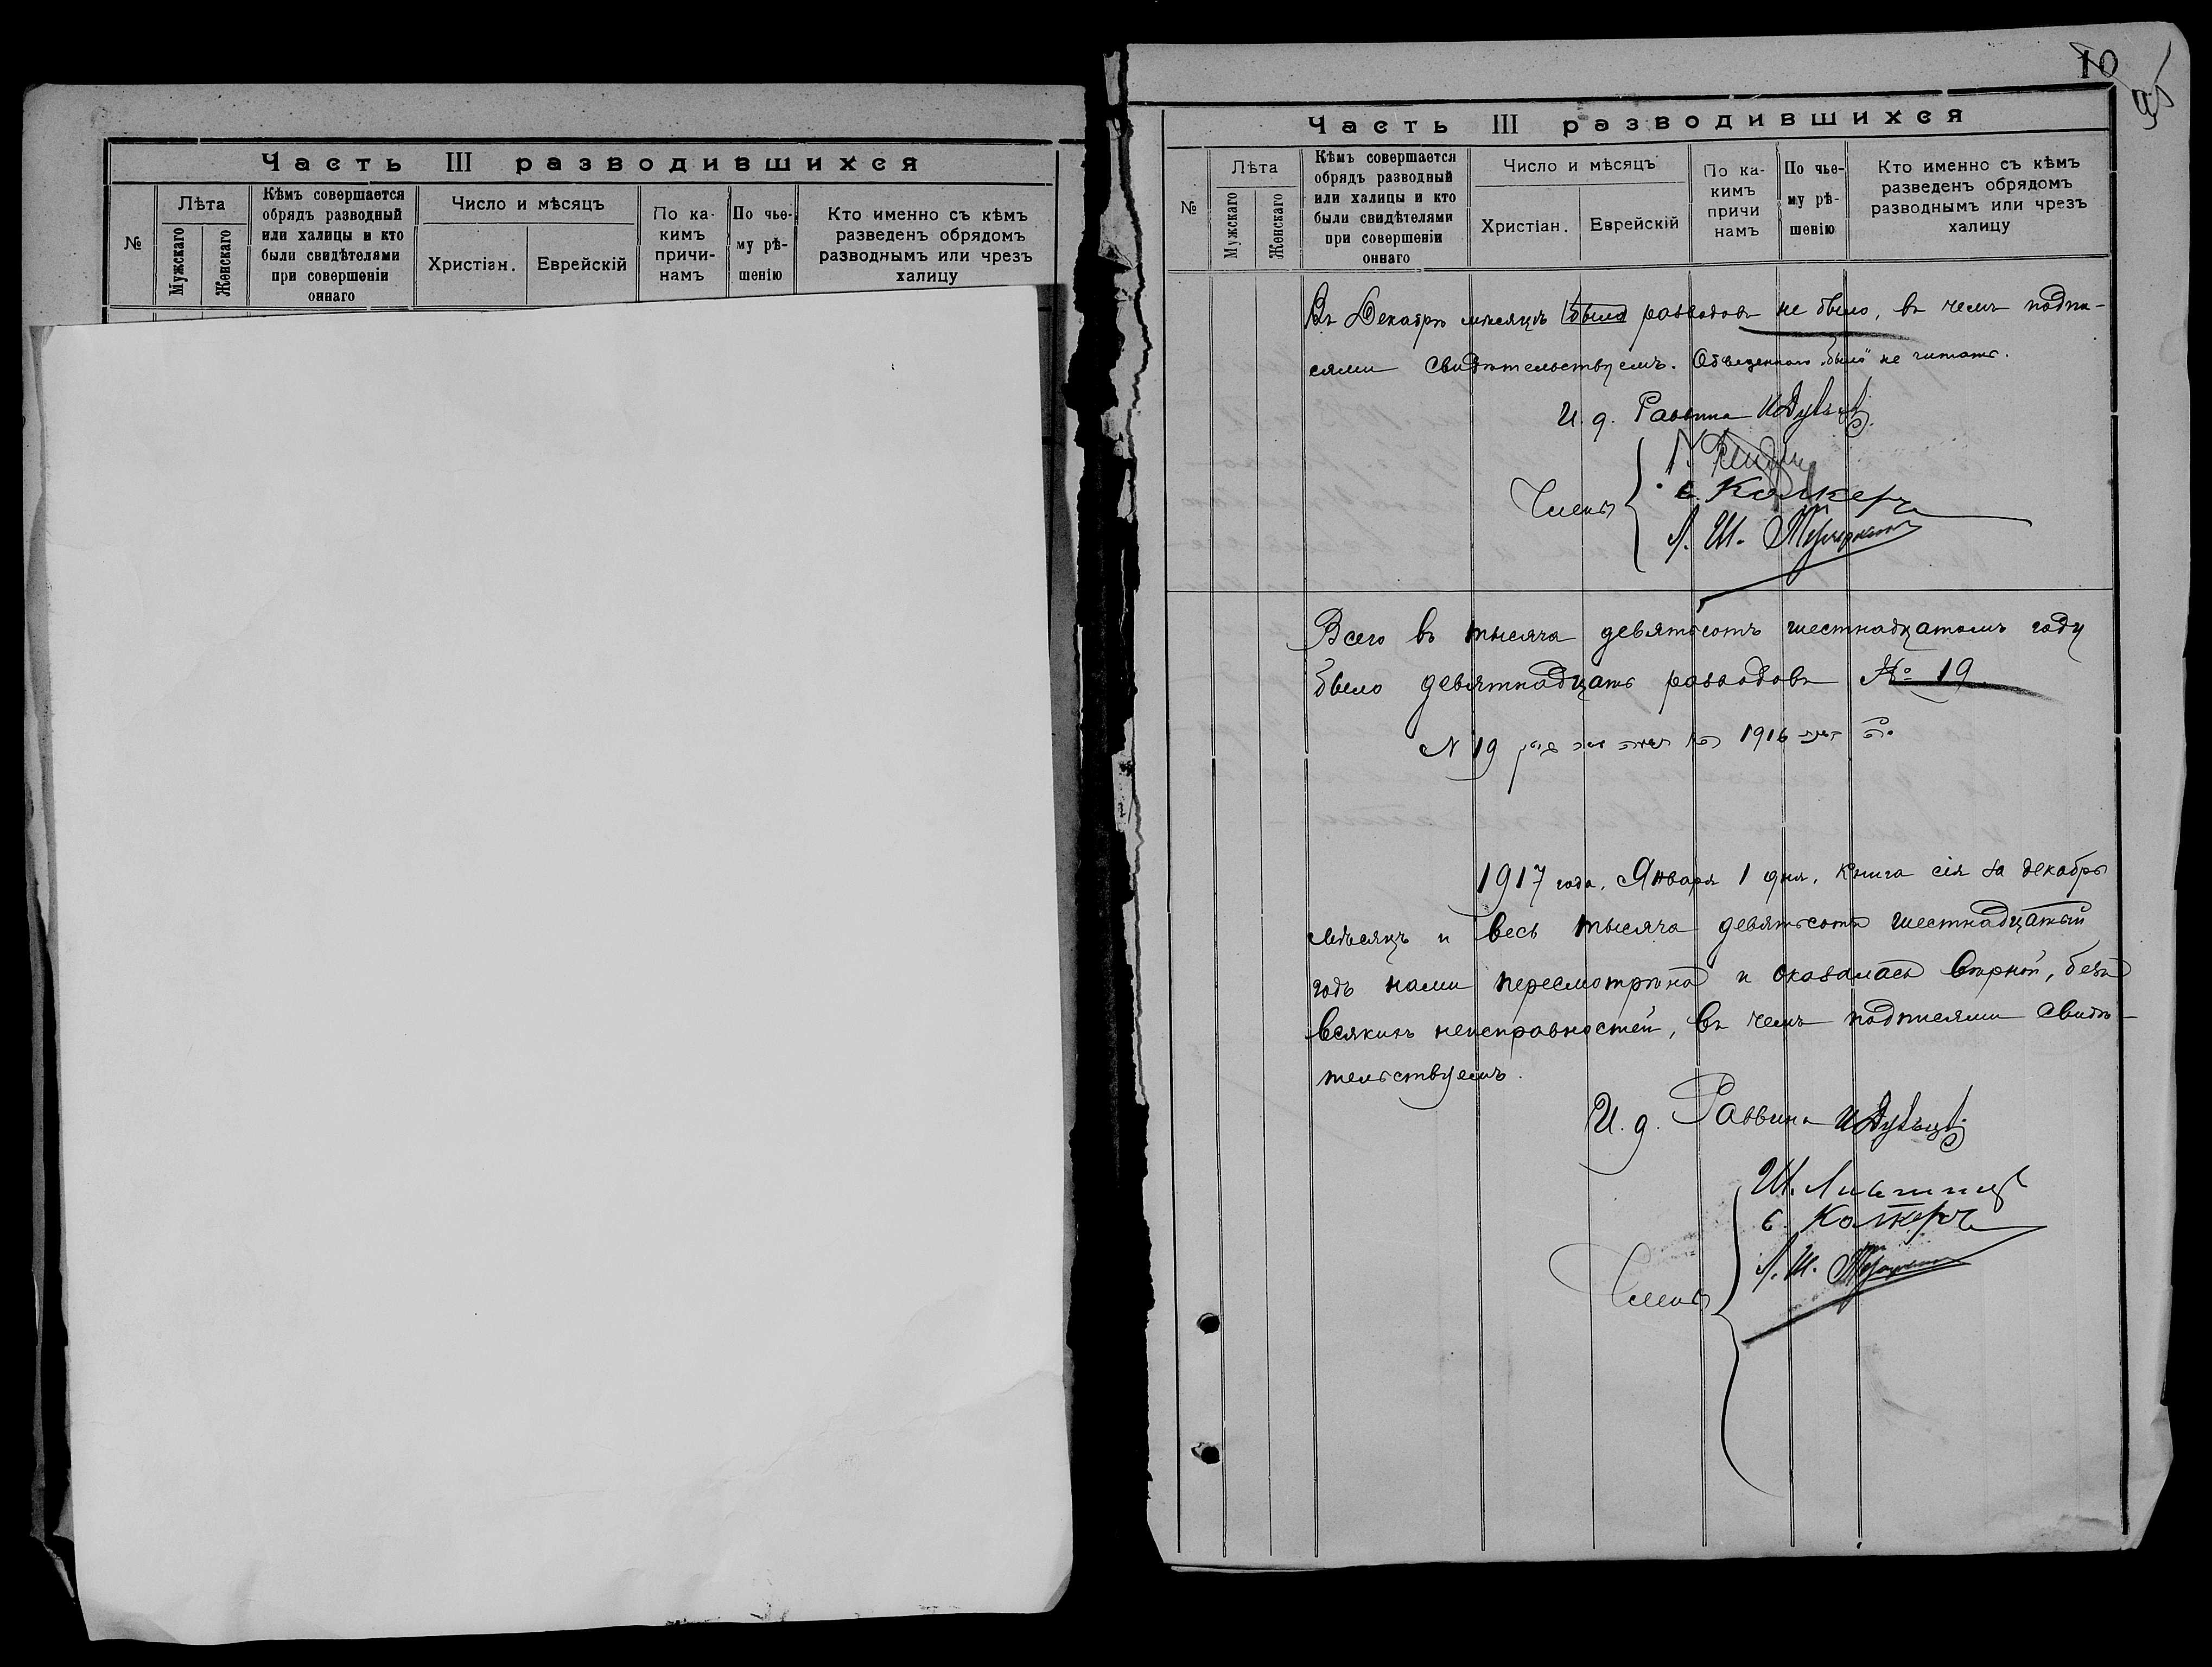 Часть III разводившихся
№
Лѣта
Мужскаго
Женскаго
Кѣмъ совершается
обрядъ разводный
или халицы и кто
были свидѣтелями
при совершеніи
оннаго
Число и мѣсяцъ
Христіан.
Еврейскій
По ка-
кимъ
причи-
намъ
По чье-
му рѣ-
шенію
Кто именно съ кѣмъ
разведенъ обрядомъ
разводнымъ или чрезъ
халицу
10
Часть III разводившихся
№
Лѣта
Мужскаго
Женскаго
Кѣмъ совершается
обрядъ разводный
или халицы и кто
были свидѣтелями
при совершеніи
оннаго
Число и мѣсяцъ
Христіан.
Еврейскій
По ка-
кимъ
причи
намъ
По чье-
му рѣ-
шенію
Кто именно съ кѣмъ
разведенъ обрядомъ
разводнымъ или чрезъ
халицу
Въ Декабрѣ мѣсяцѣ было разводовъ не было, въ чемъ подпи-
сями свидѣтельствуемъ. Обведенного „было" не читать.
И. д. Раввина
Члены
С. Колкеръ
Л. Ш.
Всего въ тысяча девятьсотъ шестнадцатомъ году
было девятнадцать разводовъ № 19
N 19 1916
1917 года, Января 1 дня, книга сія за декабрь
мѣсяцъ и весь тысяча девятьсотъ шестнадцатый
годъ нами пересмотрѣна и оказалась вѣрной, безъ
всякихъ неисправностей, въ чемъ подписями свидѣ-
тельствуемъ.
И. д. Раввина
Ш. Лившицъ
С. Колкеръ
Л. Ш.
Члены